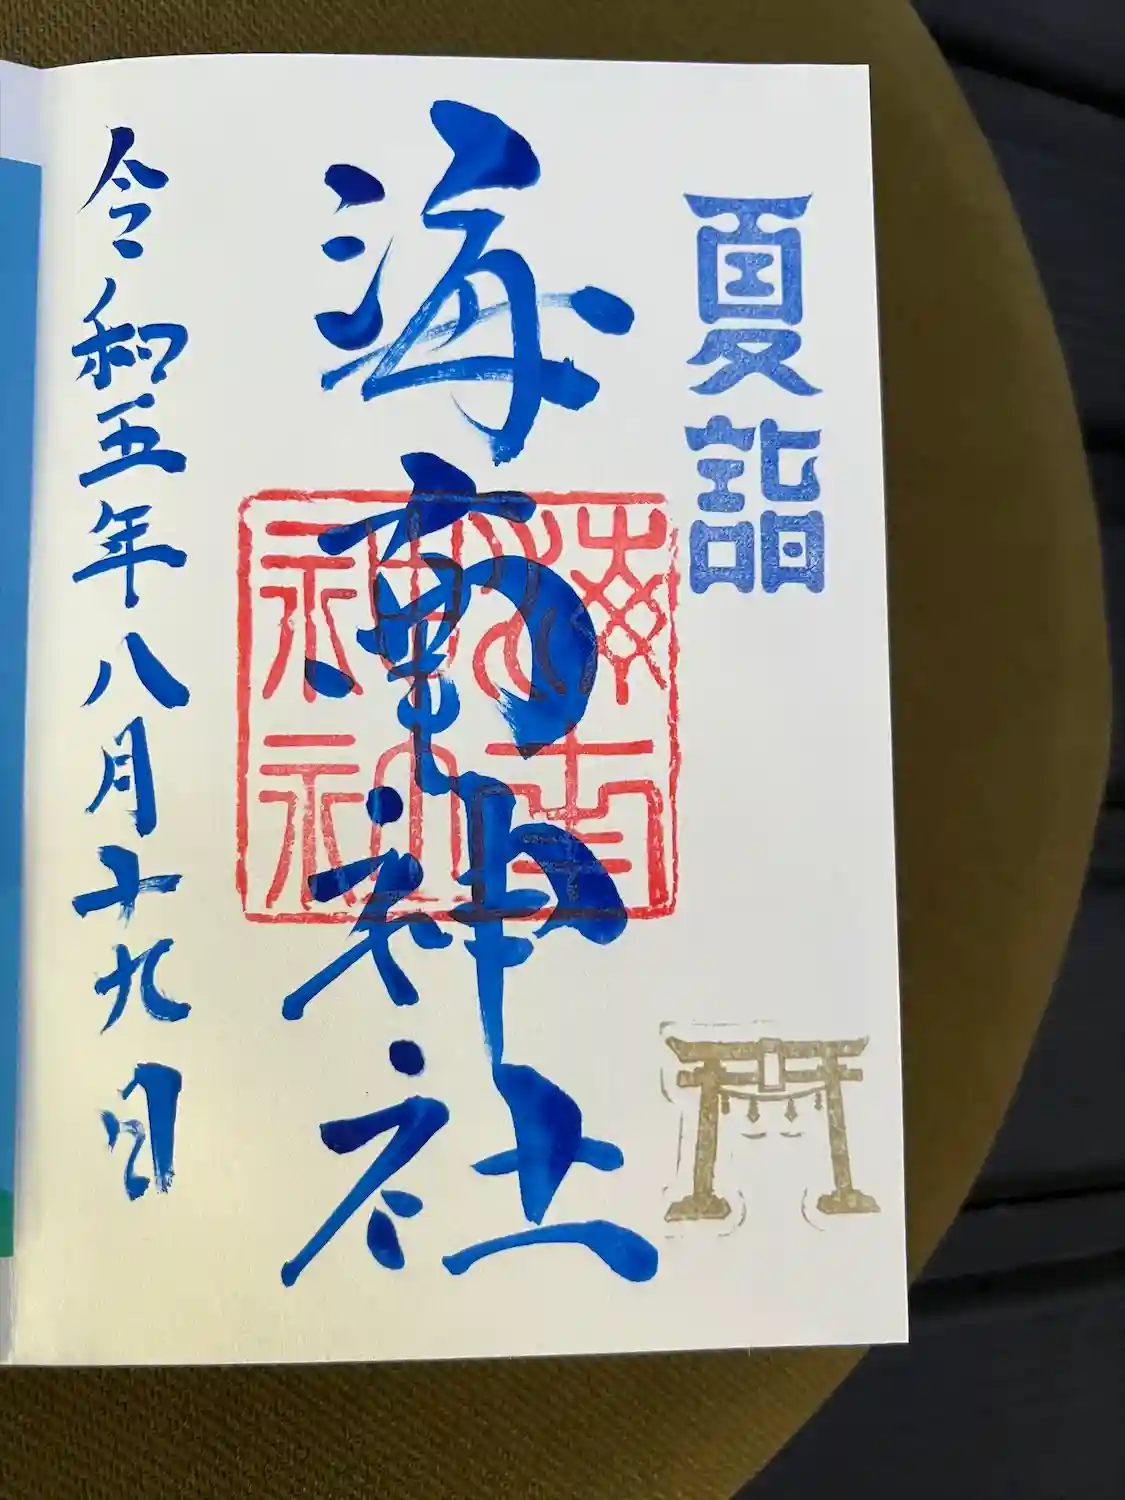 夏詣
海南神社
海南
神社
令和五年八月十九日